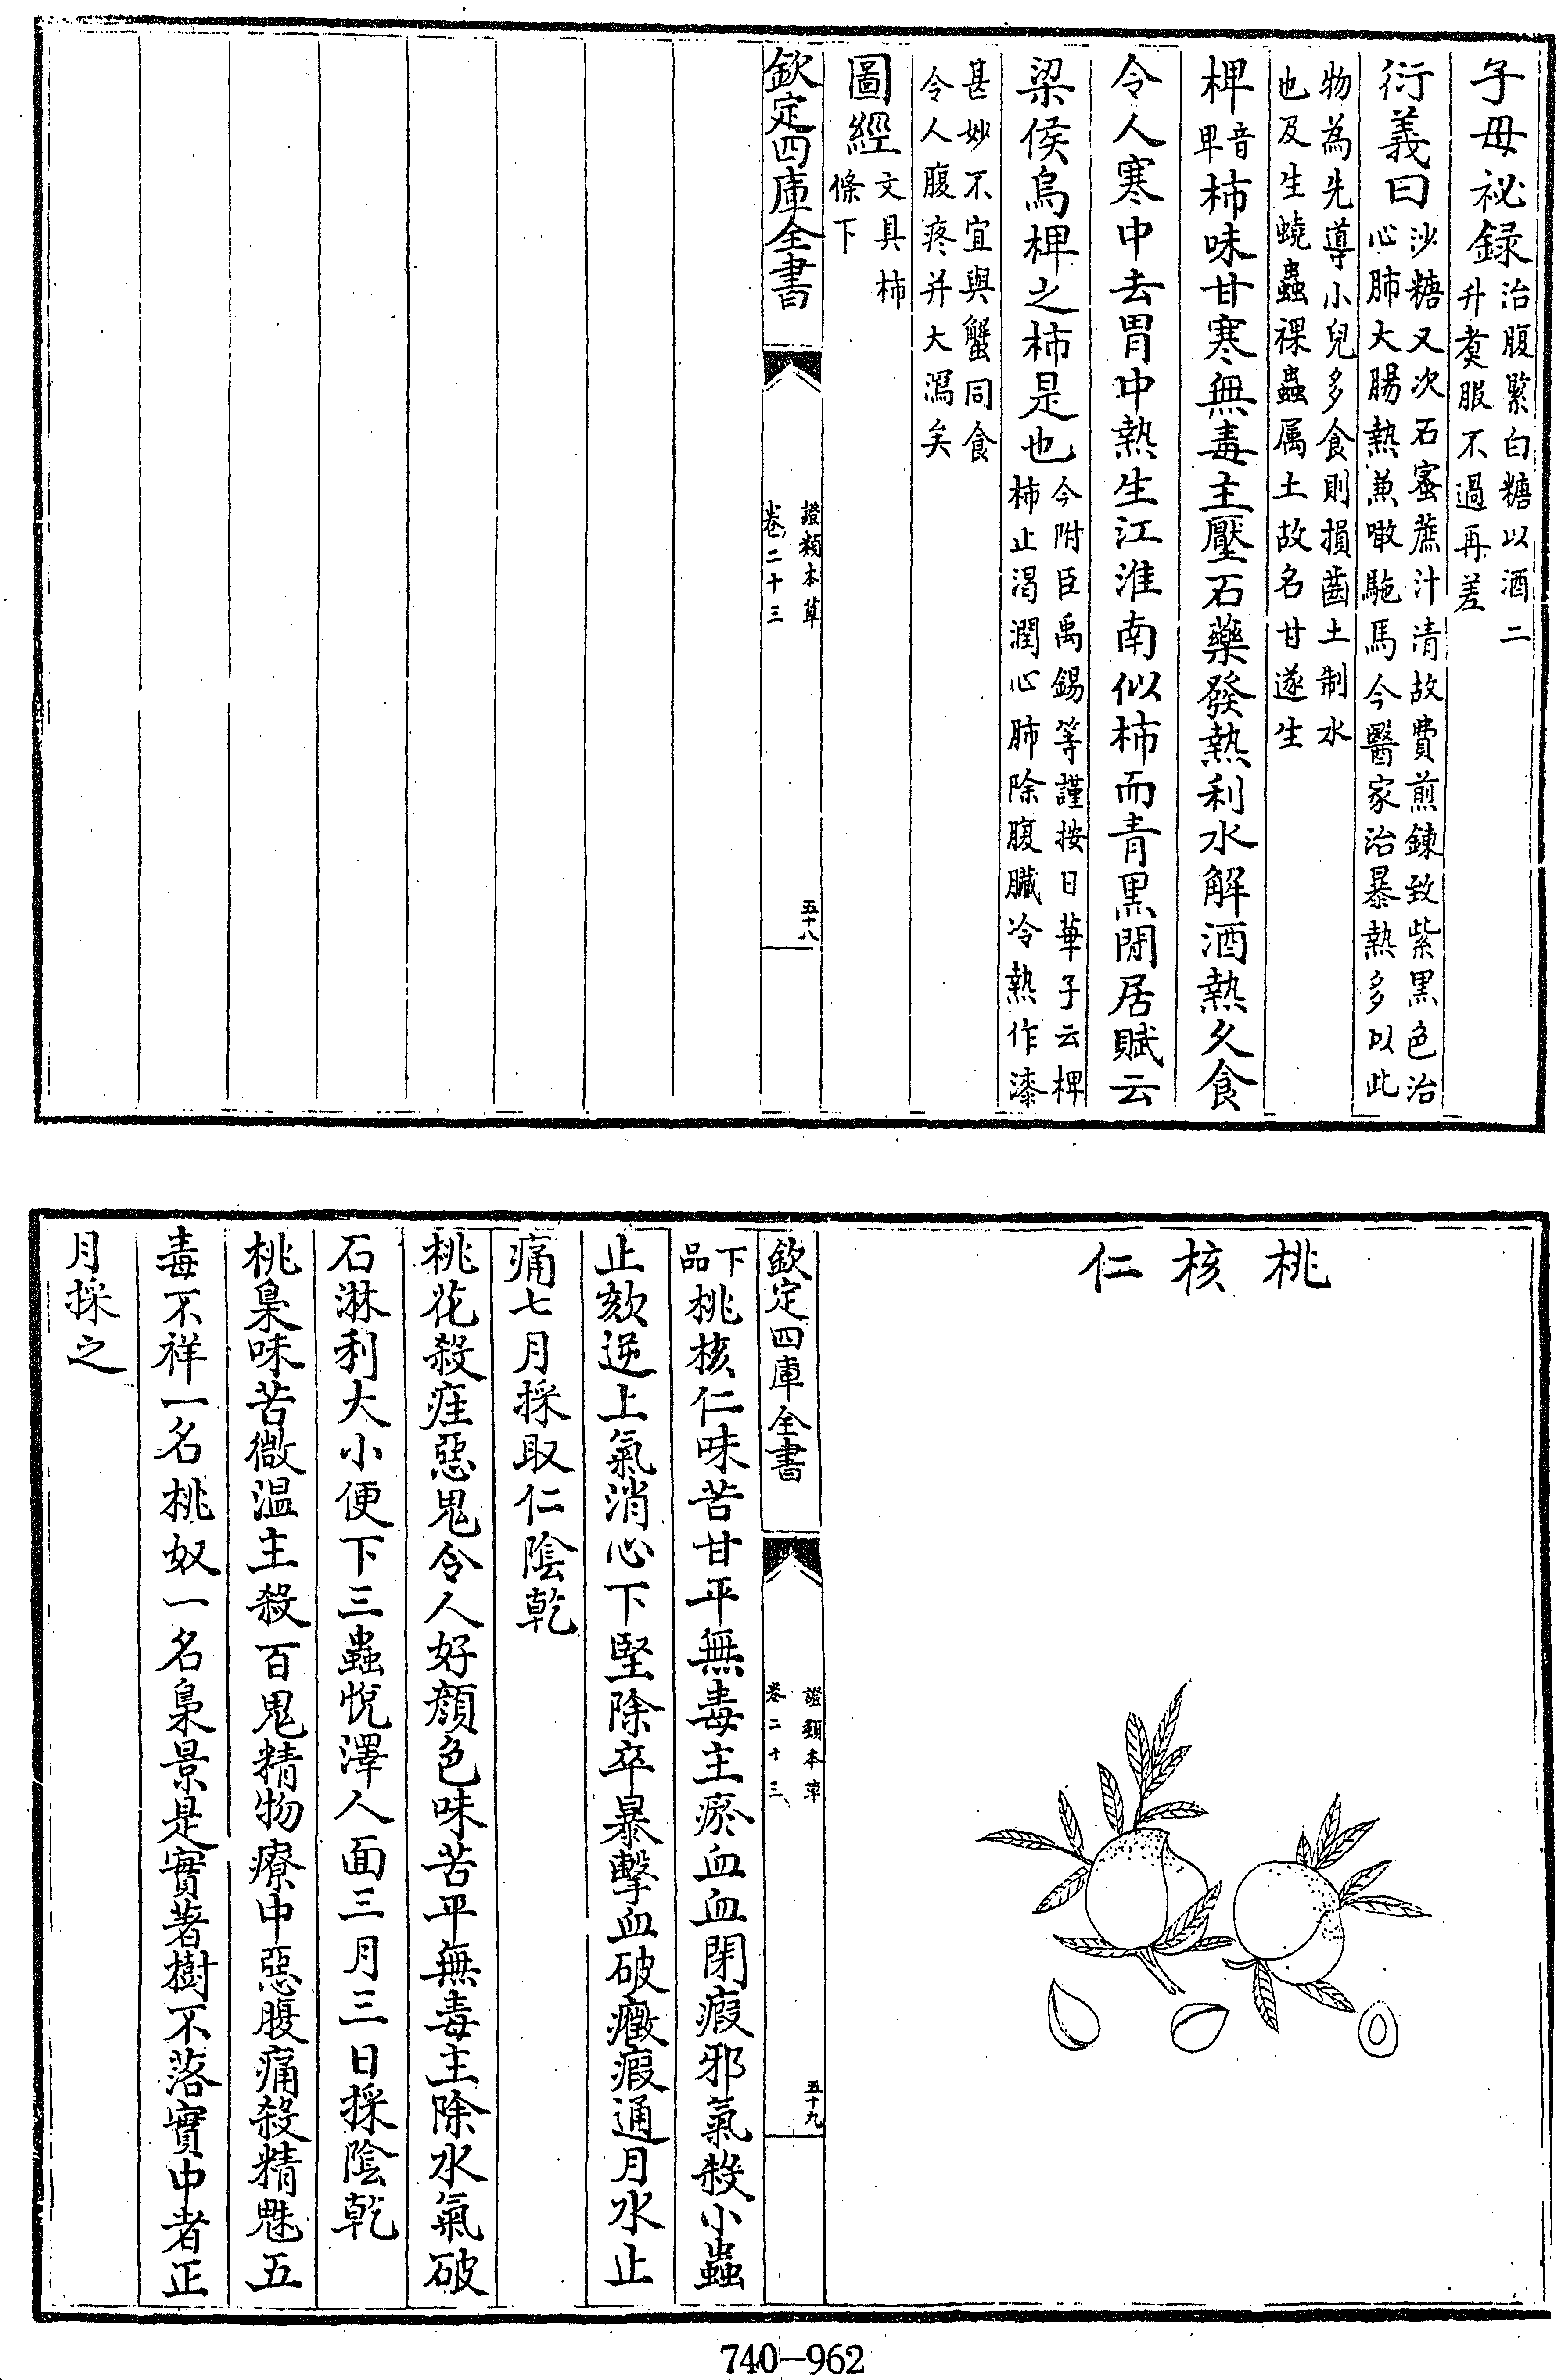 子母祕録治腹緊白糖以酒二升煮服不過再差
衍義曰沙糖又次石蜜蔗汁清故費煎鍊致紫黒色治心肺大腸熱兼噉駞馬今醫家治暴熱多以此
物為先導小兒多食則損齒土制水也及生蟯蟲裸蟲属土故名甘遂生
椑音卑柿味甘寒無毒主壓石藥發熱利水解酒熱久食
令人寒中去胃中熱生江淮南似柿而青黒閒居賦云
梁侯烏椑之柿是也今附臣禹錫等謹按日華子云椑柿止渴潤心肺除腹臟冷熱作漆
甚妙不宜與蟹同食令人腹疼并大瀉矣
圖經文具柿條下
欽定四庫全書
證類本草
卷二十三
五十八
桃核仁
欽定四庫全書
證類本草
卷二十三
五十九
下品桃核仁味苦甘平無毒主瘀血血閉瘕邪氣殺小蟲
止欬逆上氣消心下堅除卒暴擊血破癥瘕通月水止
痛七月採取仁陰乾
桃花殺疰惡鬼令人好顔色味苦平無毒主除水氣破
石淋利大小便下三蟲悅澤人面三月三日採陰乾
桃梟味苦微温主殺百鬼精物療中惡腹痛殺精魅五
毒不祥一名桃奴一名梟景是實著樹不落實中者正
月採之
740-962